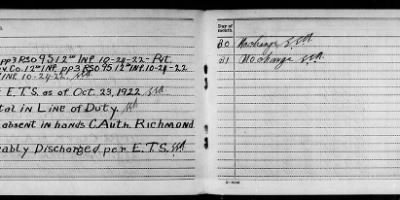 pp3 RSO 95 12" Inf. 10-24-22- Pvt.
Co. 12" Inf. pp3 RSO 95 12" Inf. 10-24-22
Inf. 10-24-22.
E.T.S. as of Oct. 23, 1922
tal in Line of Duty.
absent in hands C. Auth. Richmond
ably Discharged per E.T.S.
Day of
month.
30 No change
31 No change